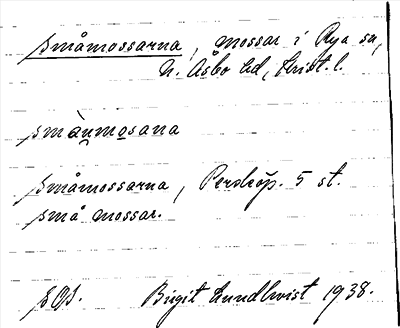 Småmossarna, mossar i Rya sn,
N. Åsbo hd, Krist. l.
smàu̯mo̲sana
Småmossarna, Perstorp. 5 st.
små mossar.
Birgit Lundkvist 1938.